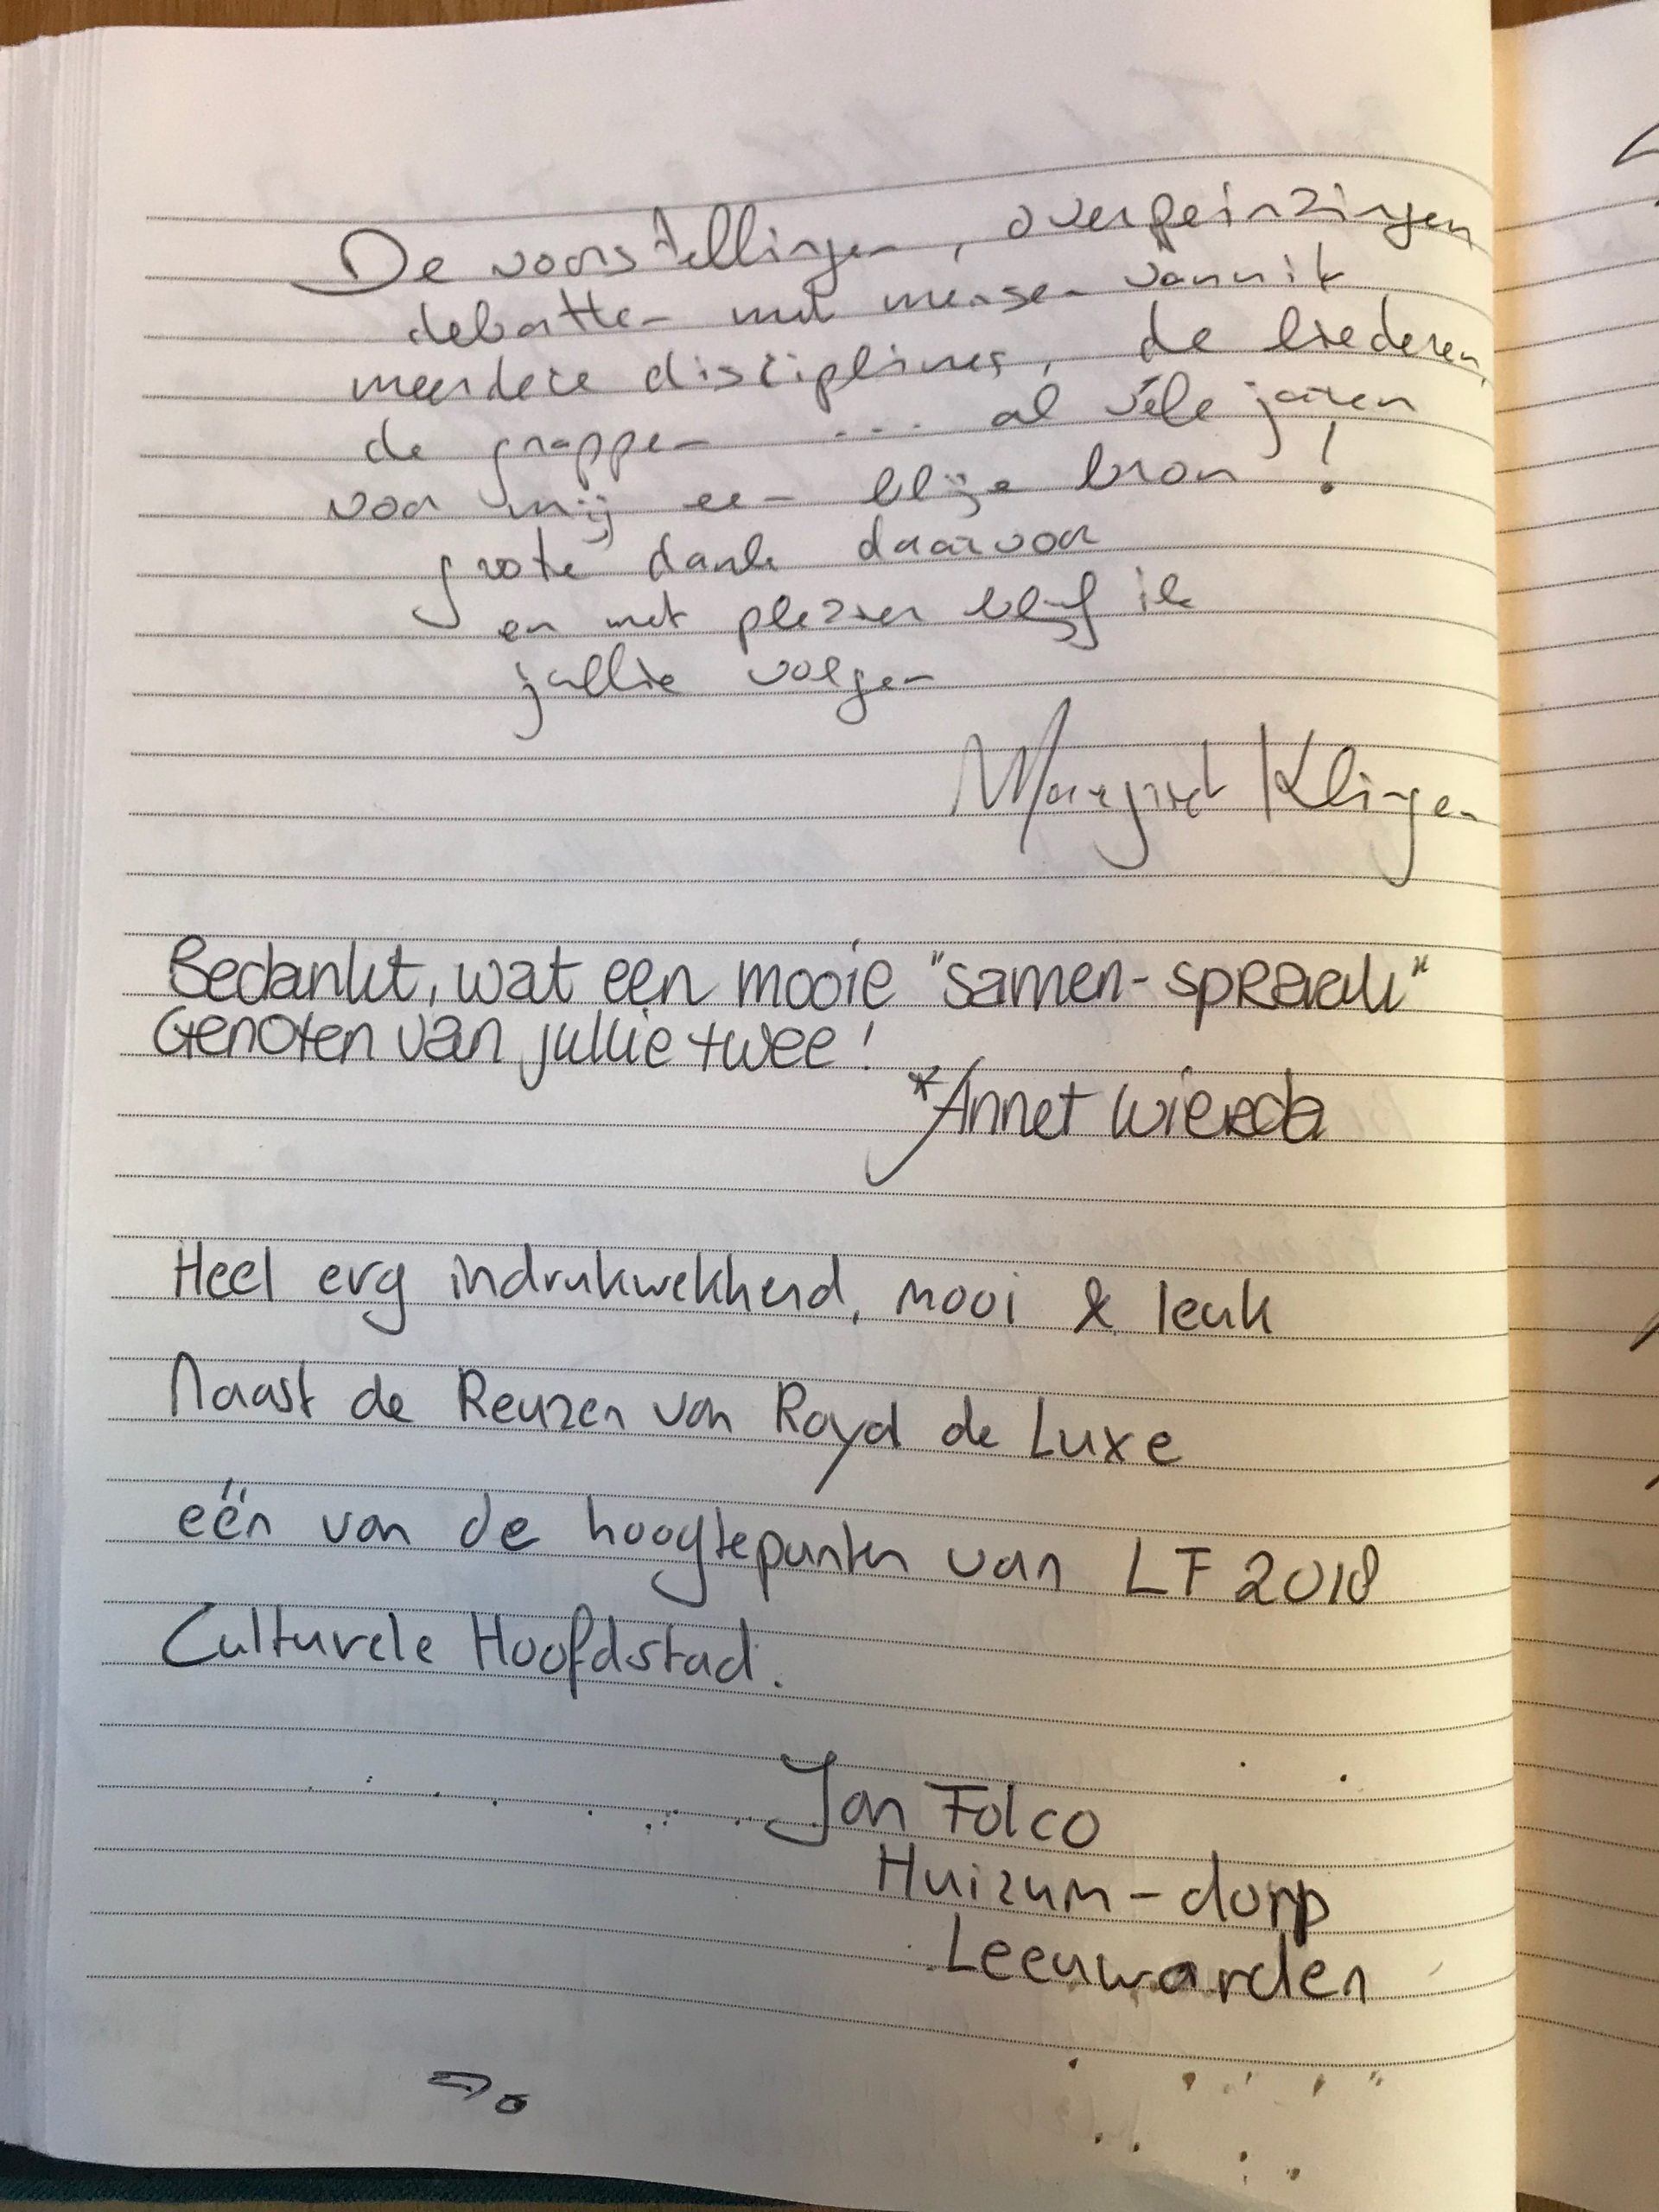 De voorstellingen, overpeinzingen
debatten met mensen vanuit
meerdere disciplines, de liederen,
de grappen .... al véle jaren
voor mij een blije bron!
grote dank daarvoor
en met plezier blijf ik
jullie volgen
Margriet Klingen
Bedankt, wat een mooie "samen-spraak"
Genoten van jullie twee!
*Annet Wierda
Heel erg indrukwekkend, mooi & leuk
Naast de Reuzen van Royal de Luxe
één van de hoogtepunten van LF 2018
Culturele Hoofdstad.
Jan Folco
Huizum-dorp
Leeuwarden